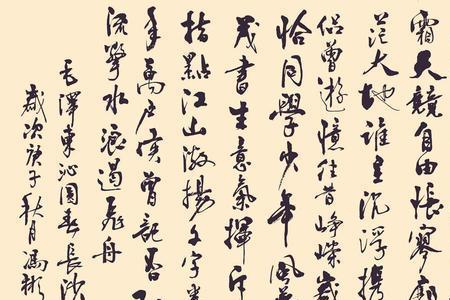 霜天競自由悵寥廓
茫大地誰主沉浮携
侶曾遊憶往昔崢嶸歲
恰同學少年風
茂書生意氣揮斥
指點江山激揚文字
年萬戶侯曾記否
流擊水浪遏飛舟
毛澤東沁園春長沙
歲次庚子秋月馮彬